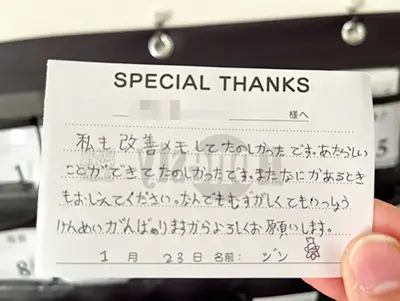 SPECIAL THANKS
様へ
私も改善メモしてたのしかったです。あたらしい
ことができてたのしかったです。またなにかあるとき
もおしえてください。なんでもむずかしくてもいっしょう
けんめいがんばりますからよろしくお願いします。
1月 23日 名前: ジン
1
8